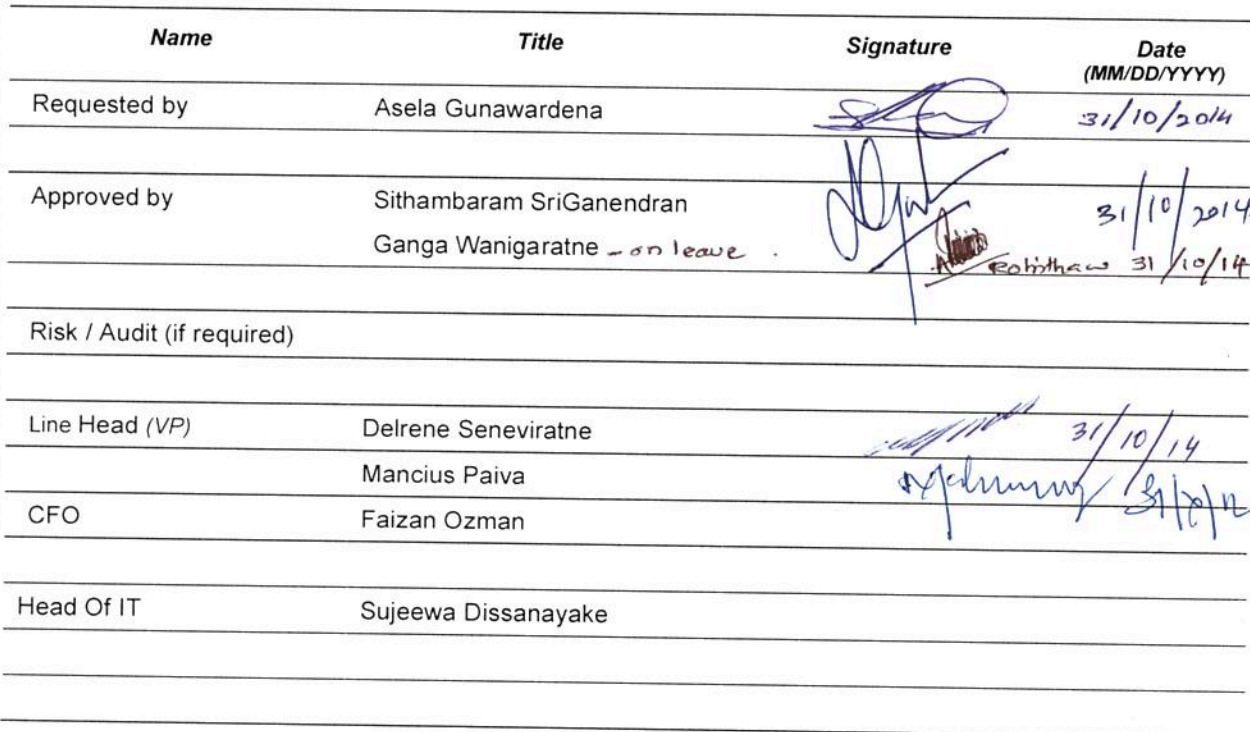 Name Title Signature Date
(MM/DD/YYYY)
Requested by Asela Gunawardena 31/10/2014
Approved by Sithambaram SriGanendran 31/10/2014
Ganga Wanigaratne - on leave . 31/10/14
Risk / Audit (if required)
Line Head (VP) Delrene Seneviratne 31/10/14
Mancius Paiva
CFO Faizan Ozman
Head Of IT Sujeewa Dissanayake